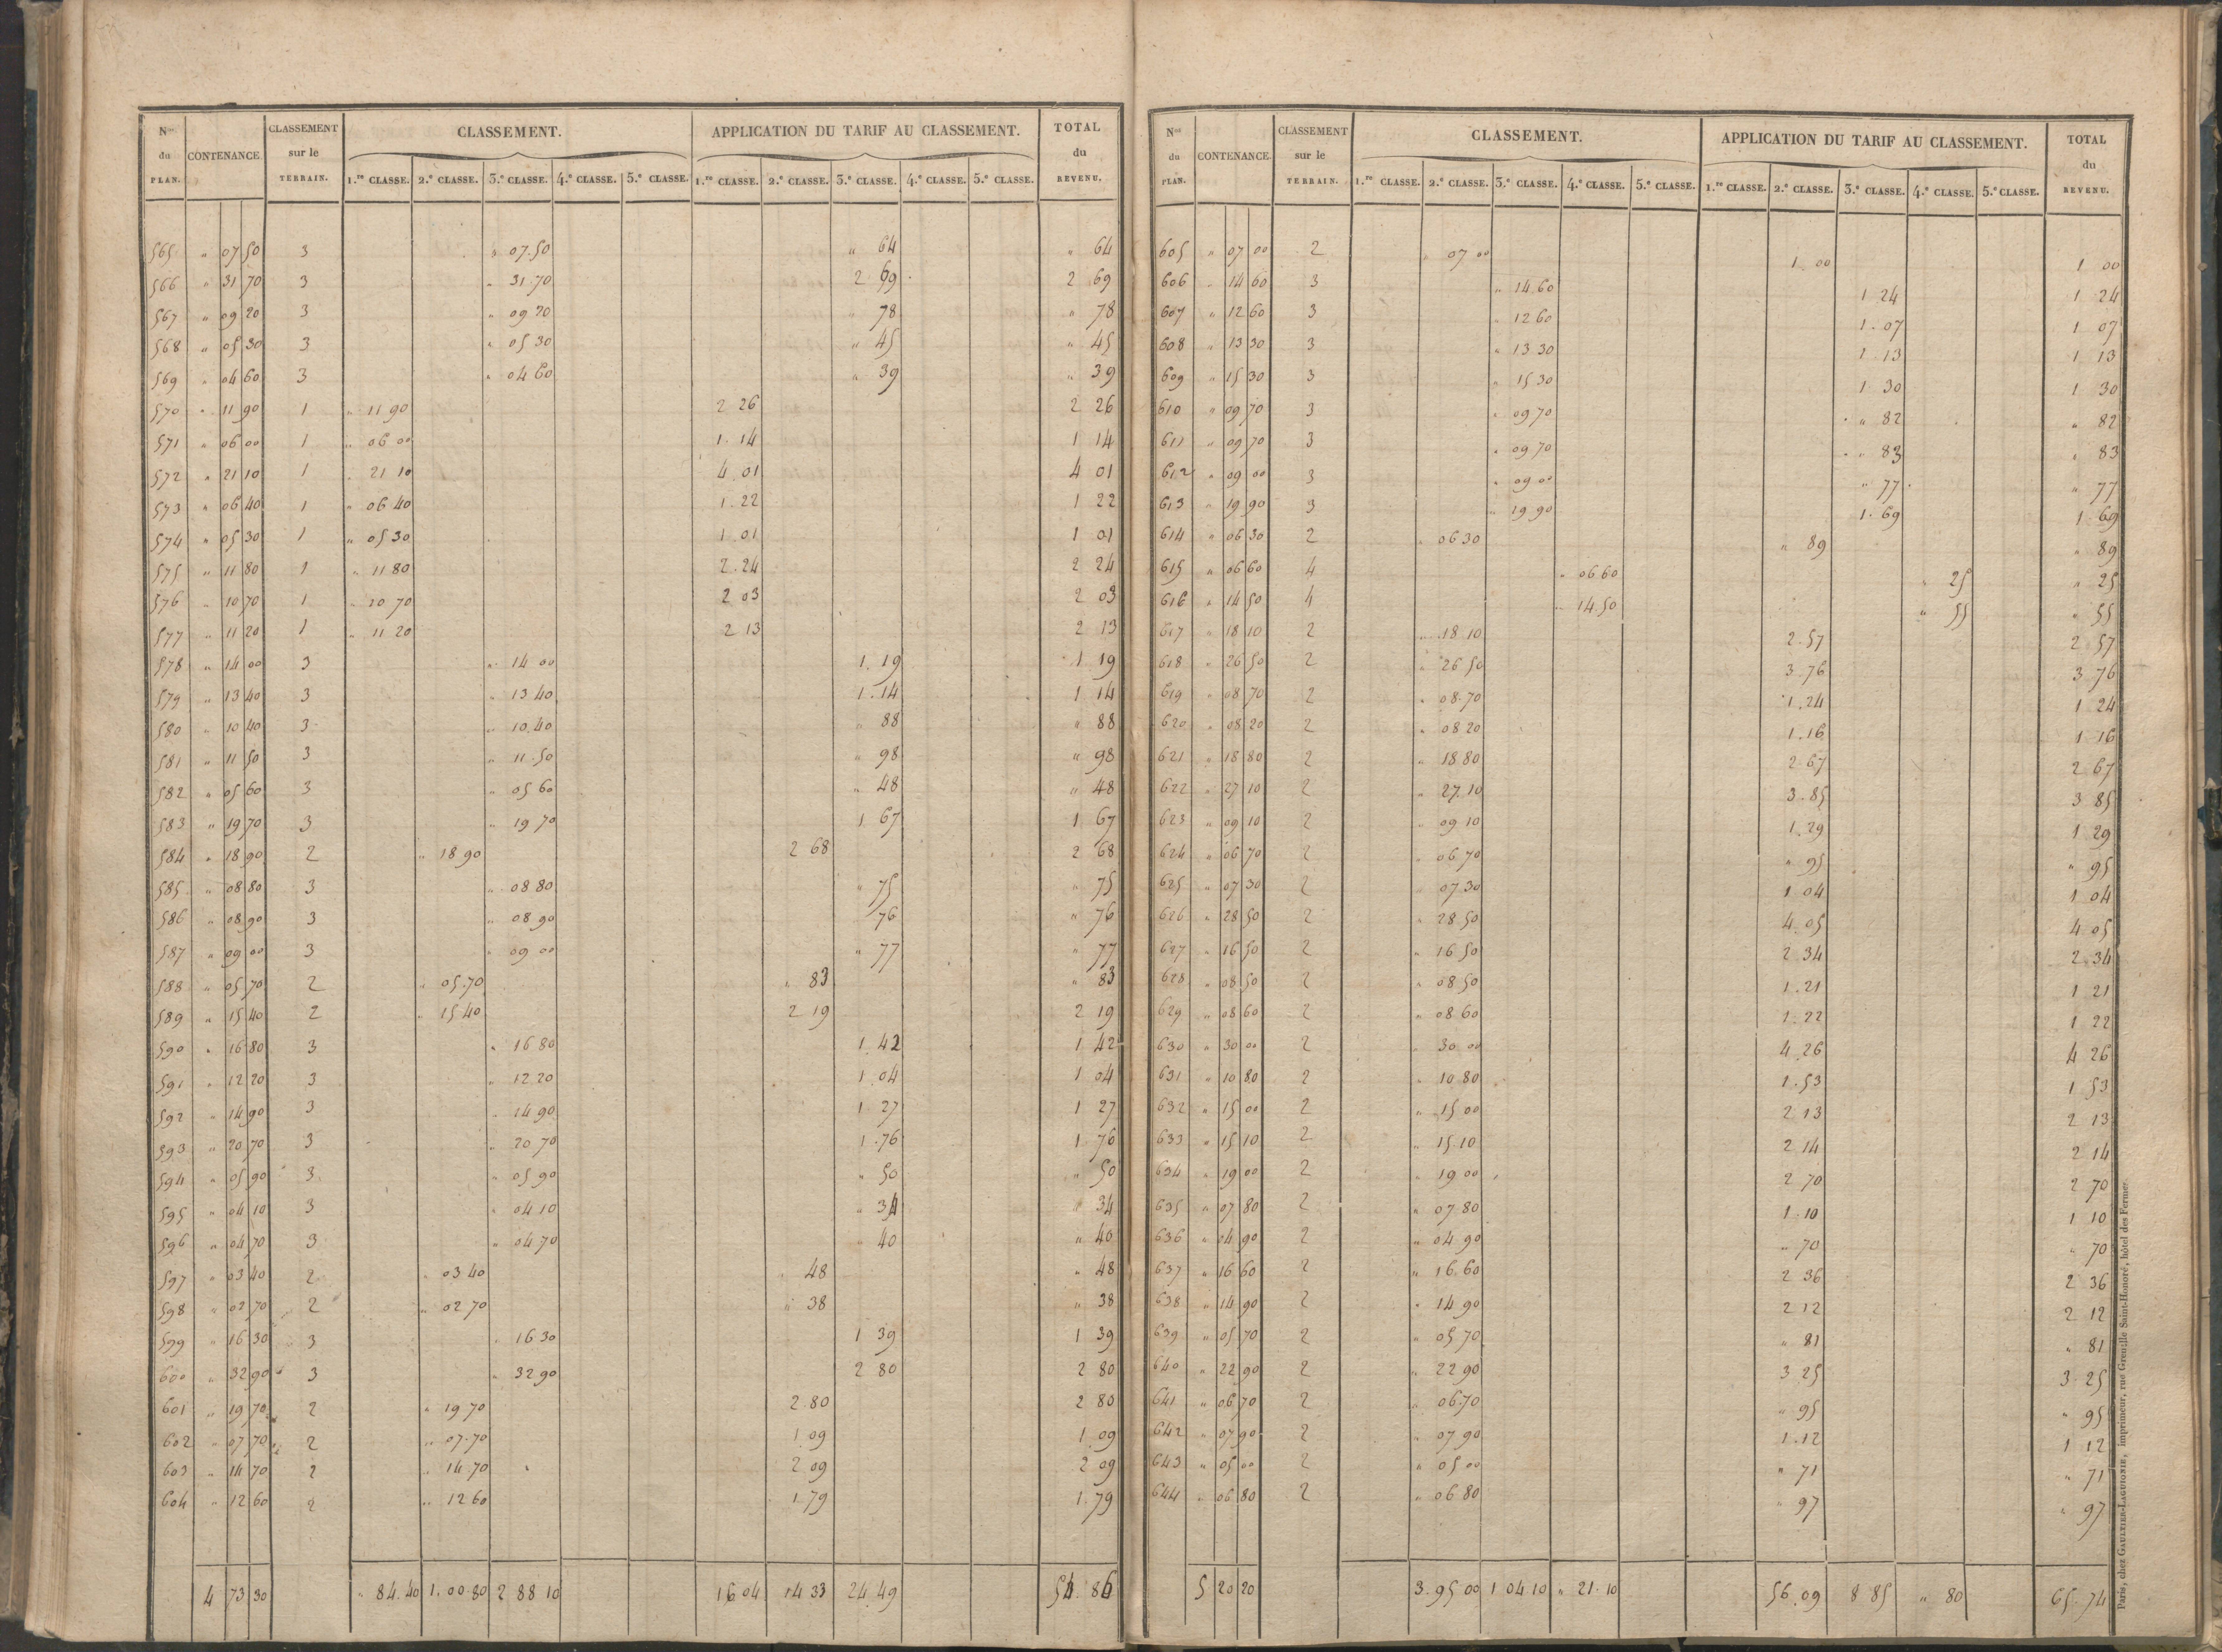 Nos du PLAN. CONTENANCE. CLASSEMENT sur le TERRAIN. CLASSEMENT. APPLICATION DU TARIF AU CLASSEMENT. TOTAL du REVENU.
1.re CLASSE. 2.e CLASSE. 3.e CLASSE. 4.e CLASSE. 5.e CLASSE. 1.re CLASSE. 2.e CLASSE. 3.e CLASSE. 4.e CLASSE. 5.e CLASSE.
565 " 07 50 3 " 07.50 " 64 " 64
566 " 31 70 3 " 31.70 2 69 2 69
567 " 09 20 3 " 09 20 " 78 " 78
568 " 05 30 3 " 05 30 " 45 " 45
569 " 04 60 3 " 04 60 " 39 " 39
570 " 11 90 1 " 11 90 2 26 2 26
571 " 06 00 1 " 06 00 1.14 1 14
572 " 21 10 1 " 21 10 4.01 4 01
573 " 06 40 1 " 06 40 1.22 1 22
574 " 05 30 1 " 05 30 1.01 1 01
575 " 11 80 1 " 11 80 2.24 2 24
576 " 10 70 1 " 10 70 2 03 2 03
577 " 11 20 1 " 11 20 2 13 2 13
578 " 14 00 3 " 14 00 1.19 1 19
579 " 13 40 3 " 13 40 1.14 1 14
580 " 10 40 3 " 10.40 " 88 " 88
581 " 11 50 3 " 11.50 " 98 " 98
582 " 05 60 3 " 05 60 " 48 " 48
583 " 19 70 3 " 19 70 1 67 1 67
584 " 18 90 2 " 18 90 2 68 2 68
585 " 08 80 3 " 08 80 " 75 " 75
586 " 08 90 3 " 08 90 76 " 76
587 " 09 00 3 " 09 00 " 77 " 77
588 " 05 70 2 " 05.70 " 83 " 83
589 " 15 40 2 " 15 40 2 19 2 19
590 " 16 80 3 " 16 80 1.42 1 42
591 " 12 20 3 " 12.20 1.04 1 04
592 " 14 90 3 " 14 90 1 27 1 27
593 " 20 70 3 " 20 70 1.76 1 76
594 " 05 90 3 " 05 90 " 50 " 50
595 " 04 10 3 " 04 10 " 34 " 34
596 " 04 70 3 " 04 70 " 40 " 40
597 " 03 40 2 " 03 40 " 48 " 48
598 " 02 70 2 " 02 70 " 38 " 38
599 " 16 30 3 " 16 30 1 39 1 39
600 " 32 90 3 " 32 90 2 80 2 80
601 " 19 70 2 " 19 70 2.80 2 80
602 " 07 70 2 " 07.70 1.09 1.09
603 " 14 70 2 " 14.70 2 09 2 09
604 " 12 60 2 " 12 60 1.79 1.79
4 73 30 " 84.40 1.00.80 2 88 10 16 04 14 33 24.49 54 86
Nos du PLAN. CONTENANCE. CLASSEMENT sur le TERRAIN. CLASSEMENT. APPLICATION DU TARIF AU CLASSEMENT. TOTAL du REVENU.
1.re CLASSE. 2.e CLASSE. 3.e CLASSE. 4.e CLASSE. 5.e CLASSE. 1.re CLASSE. 2.e CLASSE. 3.e CLASSE. 4.e CLASSE. 5.e CLASSE.
605 " 07 00 2 " 07 00 1.00 1 00
606 " 14 60 3 " 14.60 1 24 1 24
607 " 12 60 3 " 12 60 1.07 1 07
608 " 13 30 3 " 13.30 1 13 1 13
609 " 15 30 3 " 15 30 1 30 1 30
610 " 09 70 3 " 09 70 " 82 " 82
611 " 09 70 3 " 09 70 " 83 " 83
612 " 09 00 3 " 09 00 " 77 " 77
613 " 19 90 3 " 19 90 1.69 1 69
614 " 06 30 2 " 06 30 " 89 " 89
615 " 06 60 4 " 06 60 " 25 " 25
616 " 14 50 4 " 14.50 " 55 " 55
617 " 18 10 2 " 18.10 2.57 2 57
618 " 26 50 2 " 26 50 3.76 3 76
619 " 08 70 2 " 08.70 1.24 1 24
620 " 08 20 2 " 08 20 1.16 1 16
621 " 18 80 2 " 18.80 2.67 2 67
622 " 27 10 2 " 27.10 3.85 3 85
623 " 09 10 2 " 09 10 1.29 1 29
624 " 06 70 2 " 06 70 " 95 " 95
625 " 07 30 2 " 07.30 1 04 1 04
626 " 28 50 2 " 28.50 4.05 4 05
627 " 16 50 2 " 16 50 2 34 2 34
628 " 08 50 2 " 08.50 1.21 1 21
629 " 08 60 2 " 08.60 1.22 1 22
630 " 30 00 2 " 30 00 4.26 4 26
631 " 10 80 2 " 10 80 1.53 1 53
632 " 15 00 2 " 15 00 2 13 2 13
633 " 15 10 2 " 15.10 2 14 2 14
634 " 19 00 2 " 19 00 2.70 2 70
635 " 07 80 2 " 07.80 1.10 1 10
636 " 04 90 2 " 04 90 " 70 " 70
637 " 16 60 2 " 16.60 2 36 2 36
638 " 14 90 2 " 14 90 2 12 2 12
639 " 05 70 2 " 05 70 " 81 " 81
640 " 22 90 2 " 22 90 3 25 3 25
641 " 06 70 2 " 06.70 " 95 " 95
642 " 07 90 2 " 07 90 1.12 1 12
643 " 05 00 2 " 05 00 " 71 " 71
644 " 06 80 2 " 06 80 " 97 " 97
5 20 20 3.95 00 1 04 10 " 21.10 56.09 8 85 " 80 65.74
Paris, chez GAULTIER-LAGUIONIE, imprimeur, rue Grenelle Saint-Honoré, hôtel des Fermes